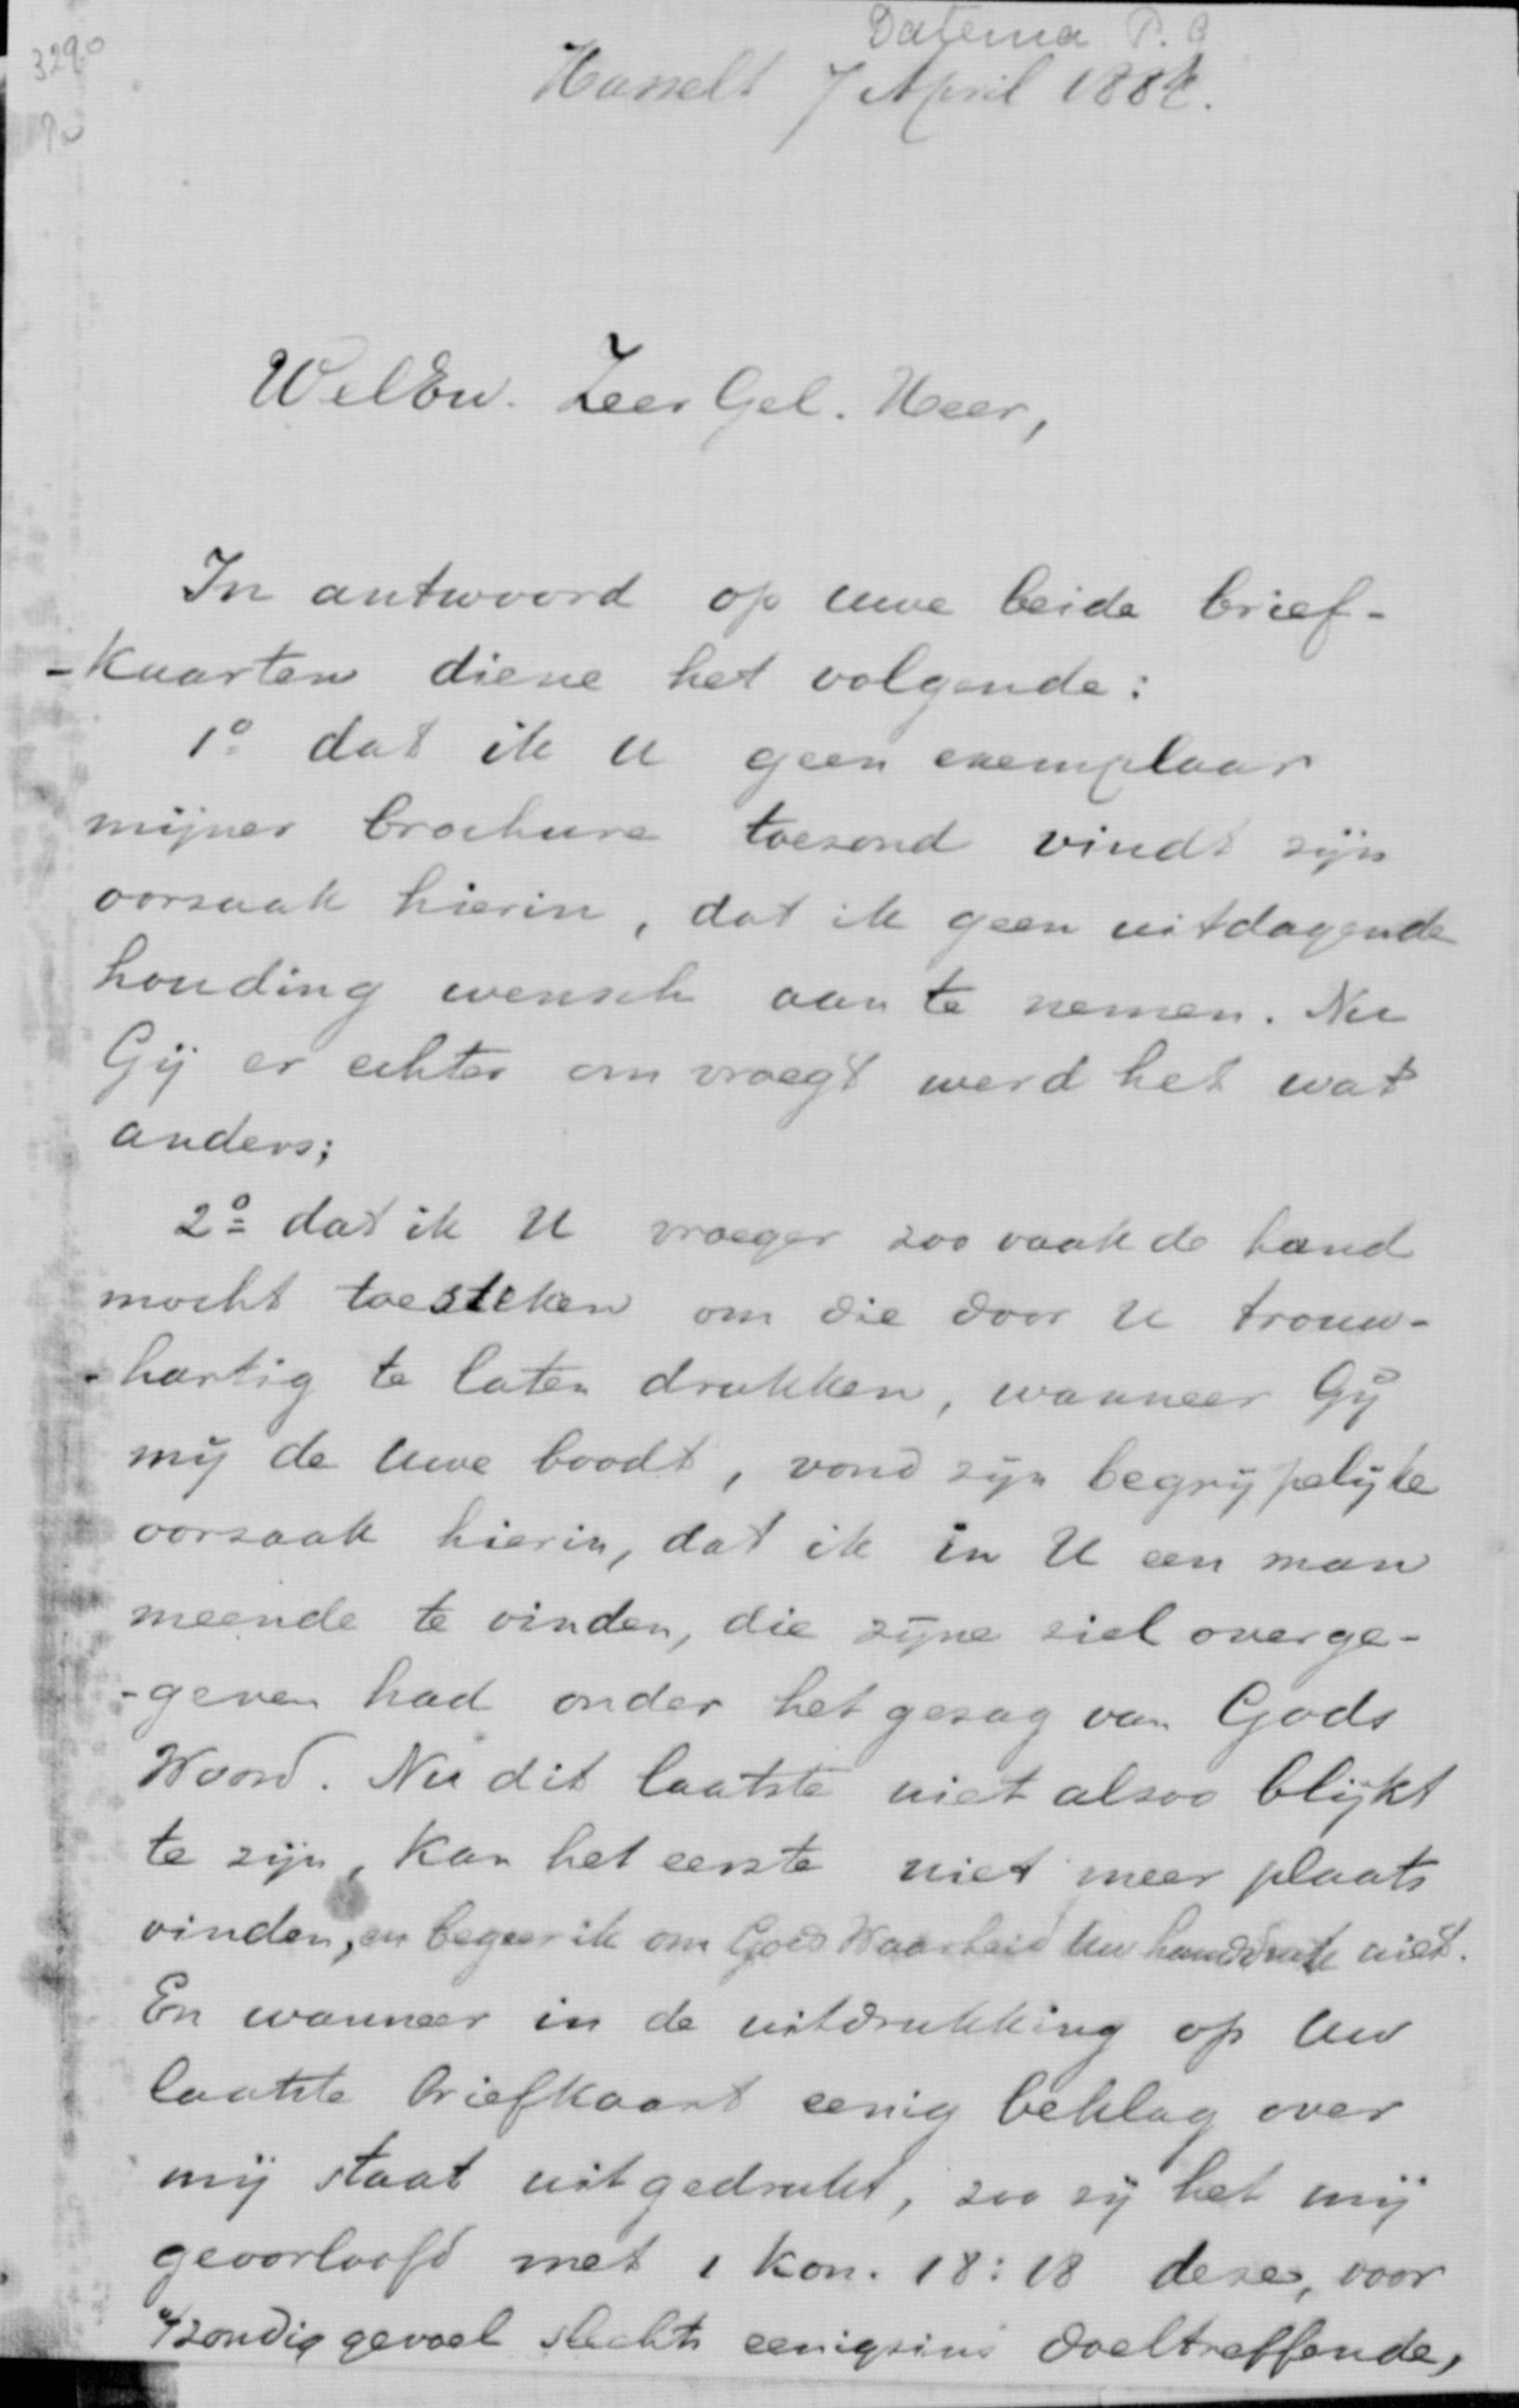 Datema P. G
3290
Hasselt 7 April 1884.
WelEw. Zeer Gel. Heer,
In antwoord op uwe beide brief-
-kaarten diene het volgende:
1º dat ik U geen exemplaar
mijner brochure toezond vindt zijn
oorzaak hierin, dat ik geen uitdagende
houding wensch aan te nemen. Nu
Gij er echter om vraagt werd het wat
anders;
2º dat ik U vroeger zoo vaak de hand
mocht toesteken om die door U trouw-
-hartig te laten drukken, wanneer Gij
mij de Uwe boodt, vond zijn begrijpelijke
oorzaak hierin, dat ik in U een man
meende te vinden, die zijne ziel overge-
-geven had onder het gezag van Gods
Woord. Nu dit laatste niet alzoo blijkt
te zijn, kan het eerste niet meer plaats
vinden, en begeer ik om Gods Waarheid Uw handdruk niet.
En wanneer in de uitdrukking op Uw
laatste briefkaart eenig beklag over
mij staat uitgedrukt, zoo zij het mij
geoorloofd met 1 Kon. 18:18 deze, voor
zondig gevoel slechts eenigzins doeltreffende,